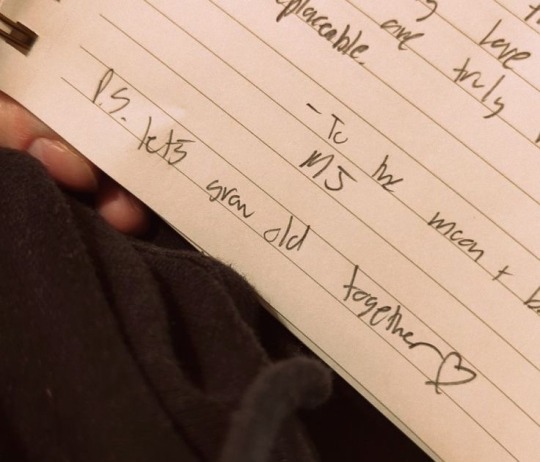 love
are truly
eplaceable.
- To he moon +
MJ
P.S. lets grow old together♡